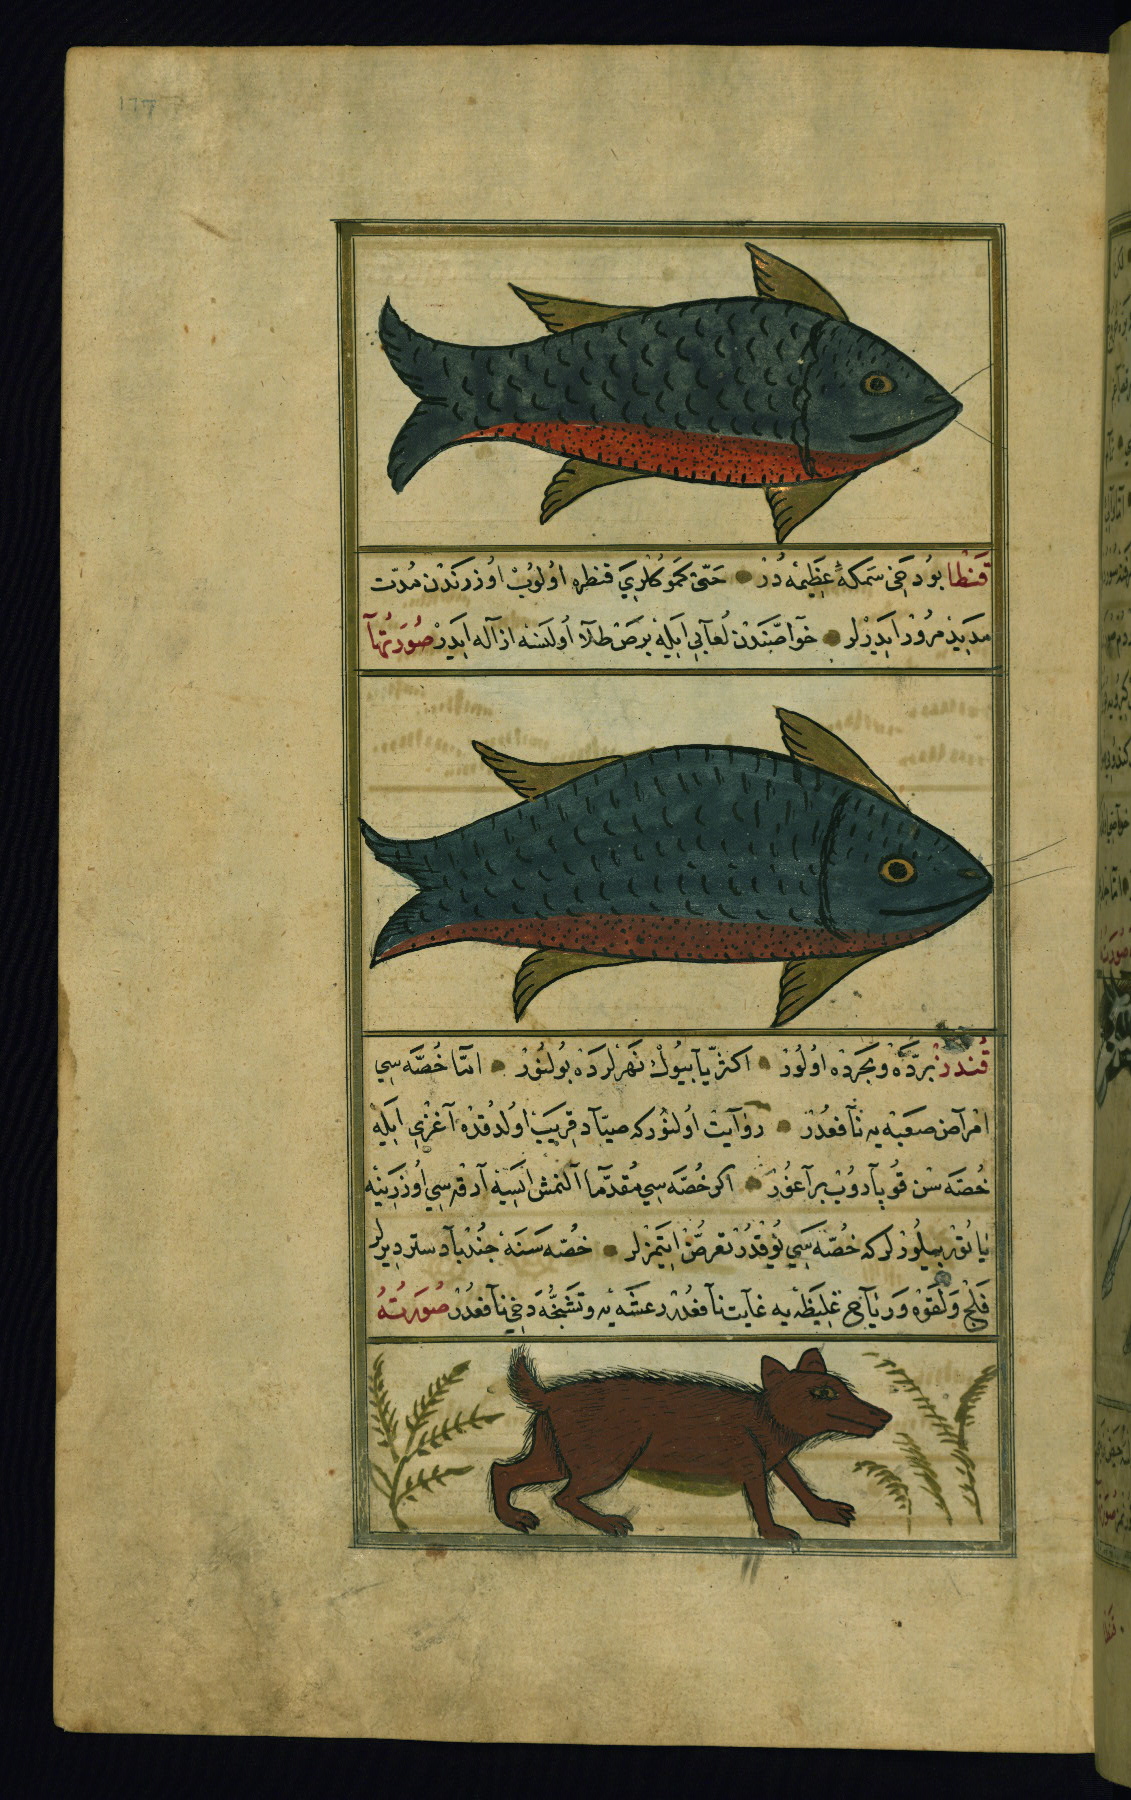 قنطا بو دخی سمكهٔ عظیمه در حتی كموكلری قنطره اولوب اوزرندن مدت
مدیذ مرور ایدرلر خواصندن لعابی ایله برص طلا اولسه ازاله ایدر صورتها
قندر برده و بحرده اولور اكثریا بیوك نهرلرده بولنور امّا خصّه سی
امراض صعبه یه نافعدر روایت اولنور كه صیاد قریب اولدقده آغزی ایله
خصّه سن قوپادوب براغور اكر خصّه سی مقدّما النمش ایسه آرقه سی اوزرینه
یاتور بیلورلر كه خصّه سی یوقدر تعرّض ایتمزلر خصّه سنه جندبادستر دیرلر
فلج و لقوه و ریاح غلیظه یه غایت نافعدر رعشه یه و تشنّجه دخی نافعدر صورته